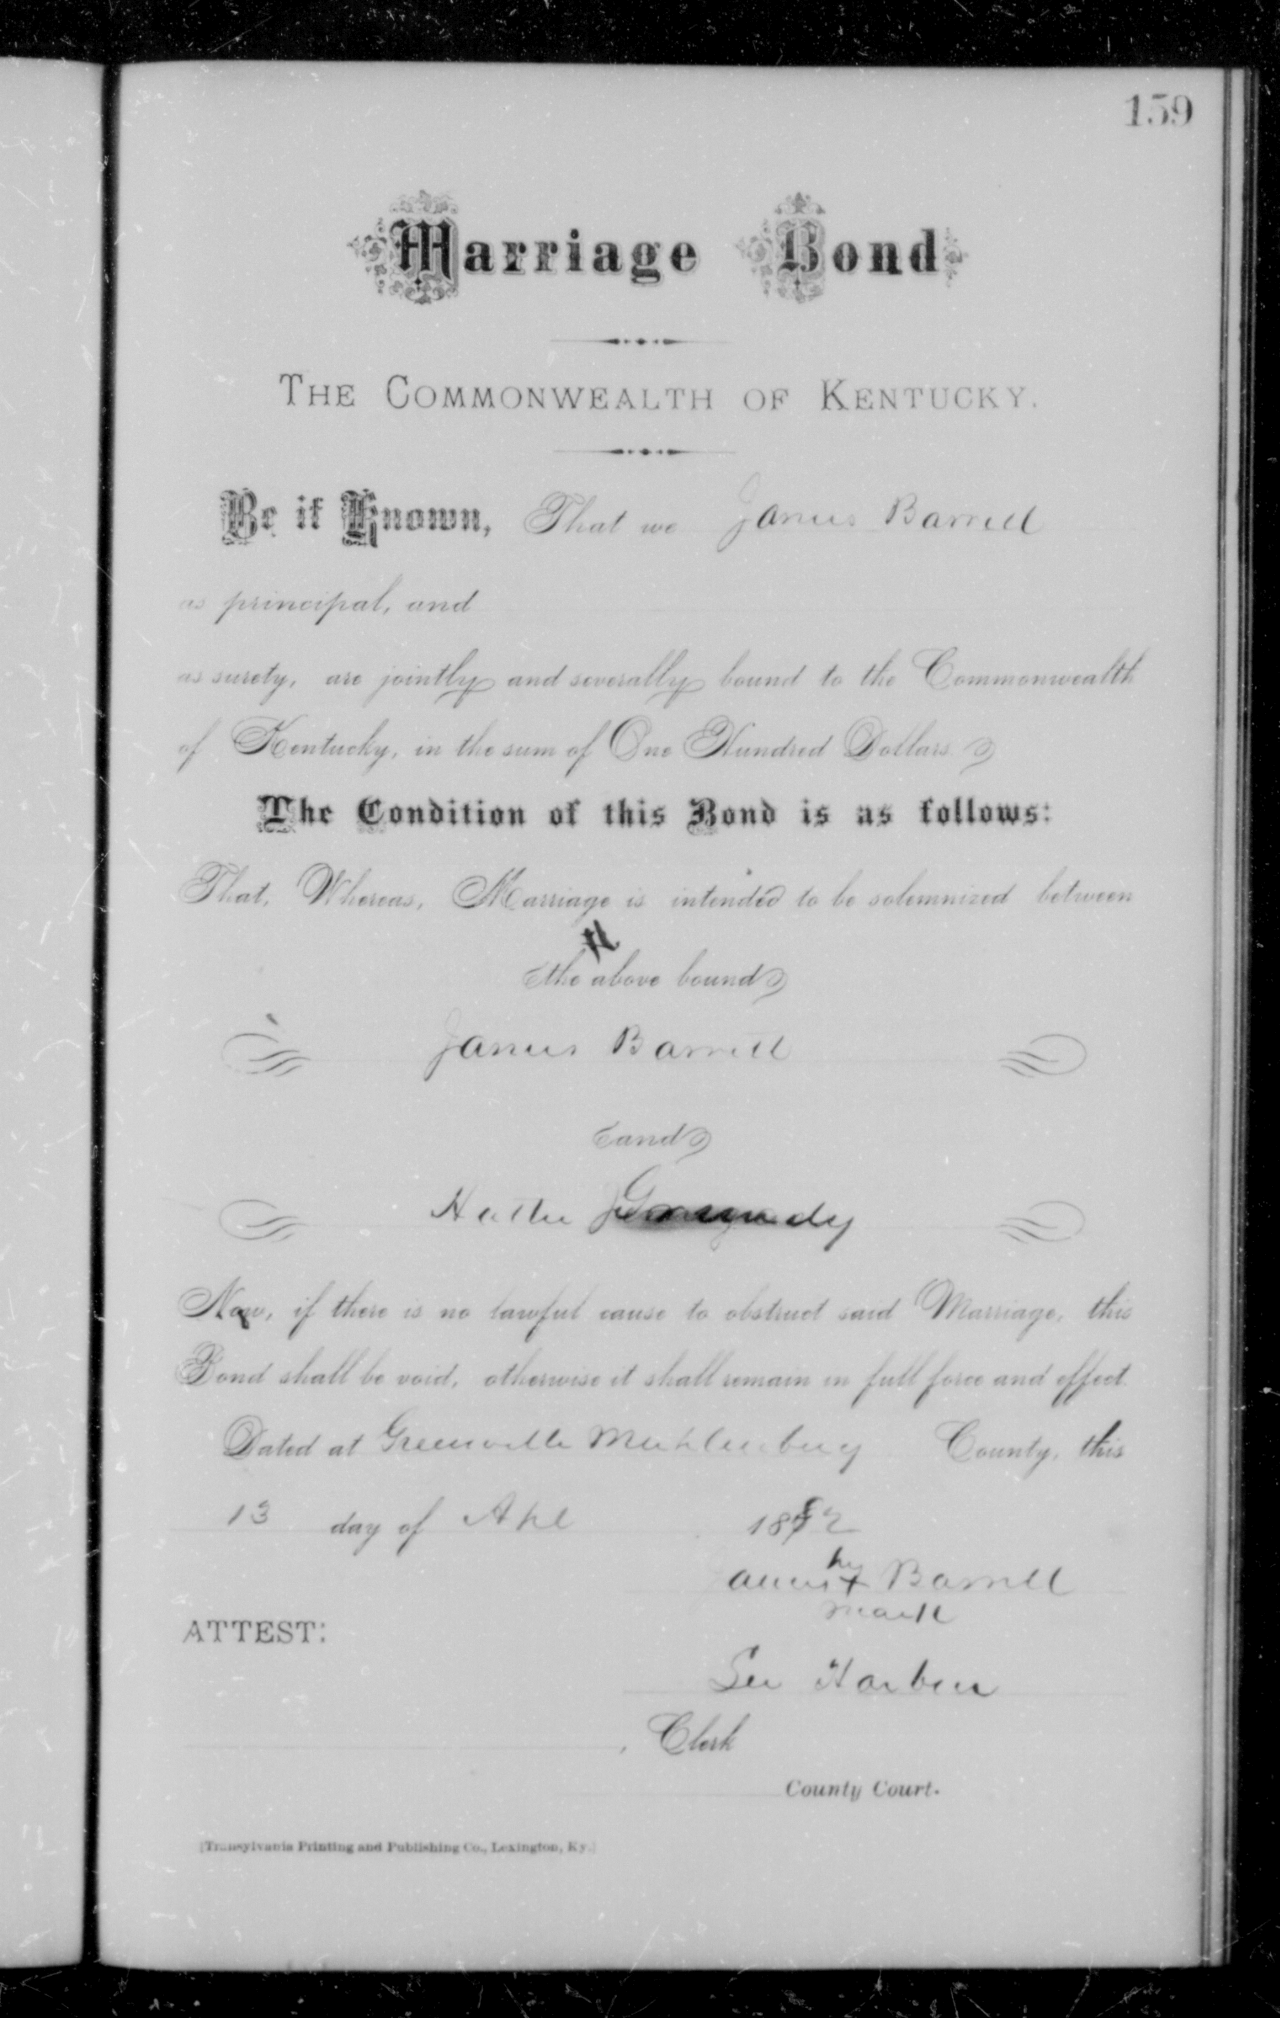 159
Marriage Bond
THE COMMONWEALTH OF KENTUCKY.
Be it Known, That we James Barrell
as principal, and
as surety, are jointly and severally bound to the Commonwealth
of Kentucky, in the sum of One Hundred Dollars
The Condition of this Bond is as follows:
That, Whereas, Marriage is intended to be solemnized between
the above bound
James Barrell
and
Hattie
Now, if there is no lawful cause to obstruct said Marriage, this
Bond shall be void, otherwise it shall remain in full force and effect
Dated at Greenville Muhlenburg County, this
13 day of Apl 1882
his
x Barrell
mark
ATTEST:
, Clerk
County Court.
[Transylvania Printing and Publishing Co., Lexington, Ky.]